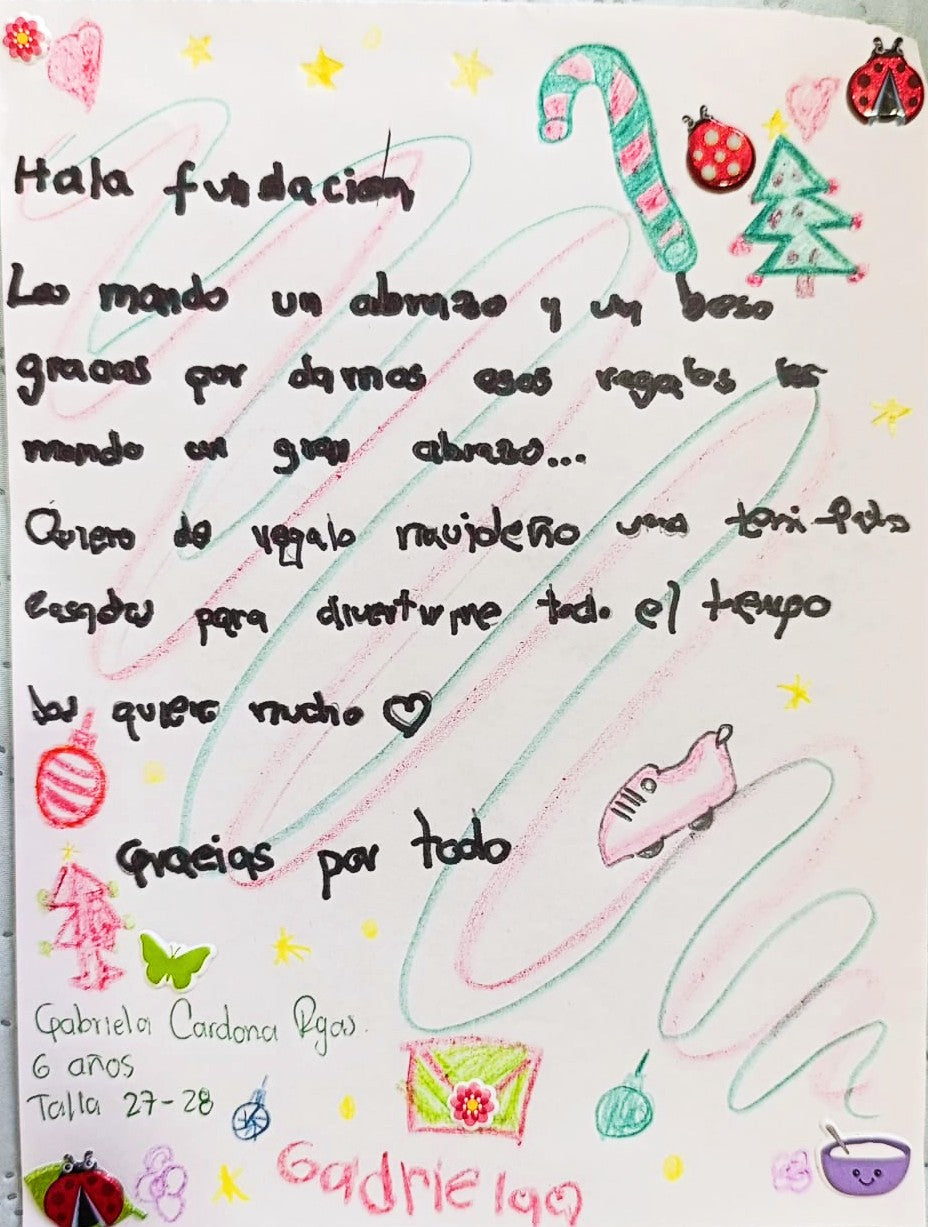 Hola fundación
Les mando un abrazo y un beso
gracias por darnos esos regalos les
mando un gran abrazo...
Quiero de regalo navideño unos teni-Patis
rosados para divertirme todo el tiempo
los quiero mucho
Gracias por todo
Gabriela Cardona
6 años
Talla 27-28
Gadriela